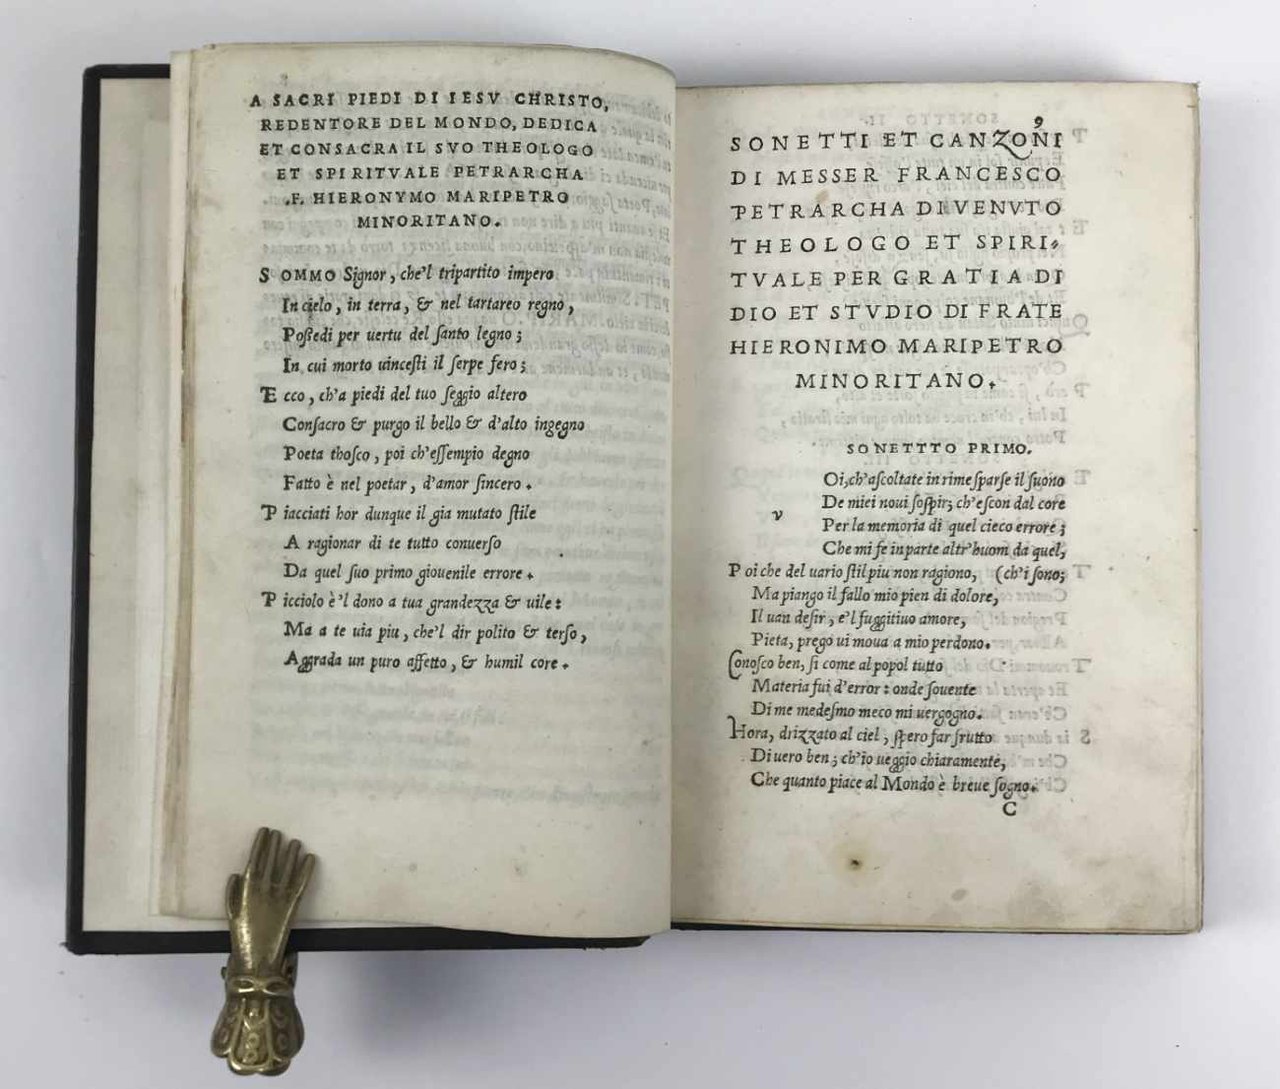 A SACRI PIEDI DI IESV CHRISTO,
REDENTORE DEL MONDO, DEDICA
ET CONSACRA IL SVO THEOLOGO
ET SPIRITVALE PETRARCHA
.F. HIERONYMO MARIPETRO
MINORITANO.
SOMMO Signor, che'l tripartito impero
In cielo, in terra, & nel tartareo regno,
Poſſedi per uertu del ſanto legno;
In cui morto uinceſti il ſerpe fero;
Ecco, ch'a piedi del tuo ſeggio altero
Conſacro & purgo il bello & d'alto ingegno
Poeta thoſco, poi ch'eſſempio degno
Fatto è nel poetar, d'amor ſincero.
Piacciati hor dunque il gia mutato ſtile
A ragionar di te tutto conuerſo
Da quel ſuo primo giouenile errore.
Picciolo è'l dono a tua grandezza & uile:
Ma a te uia piu, che'l dir polito & terſo,
Aggrada un puro affetto, & humil core.
9
SONETTI ET CANZONI
DI MESSER FRANCESCO
PETRARCHA DIVENVTO
THEOLOGO ET SPIRI-
TVALE PER GRATIA DI
DIO ET STVDIO DI FRATE
HIERONIMO MARIPETRO
MINORITANO.
SONETTTO PRIMO.
V Oi, ch'aſcoltate in rime ſparſe il ſuono
De miei noui ſoſpir; ch'eſcon dal core
Per la memoria di quel cieco errore;
Che mi fe in parte altr'huom da quel,
Poi che del uario ſtil piu non ragiono, (ch'i ſono;
Ma piango il fallo mio pien di dolore,
Il uan deſir, e'l fuggitiuo amore,
Pieta, prego ui moua a mio perdono.
Conoſco ben, ſi come al popol tutto
Materia fui d'error: onde ſouente
Di me medeſmo meco mi uergogno.
Hora, drizzato al ciel, ſpero far frutto
Di uero ben; ch'io ueggio chiaramente,
Che quanto piace al Mondo è breue ſogno.
C